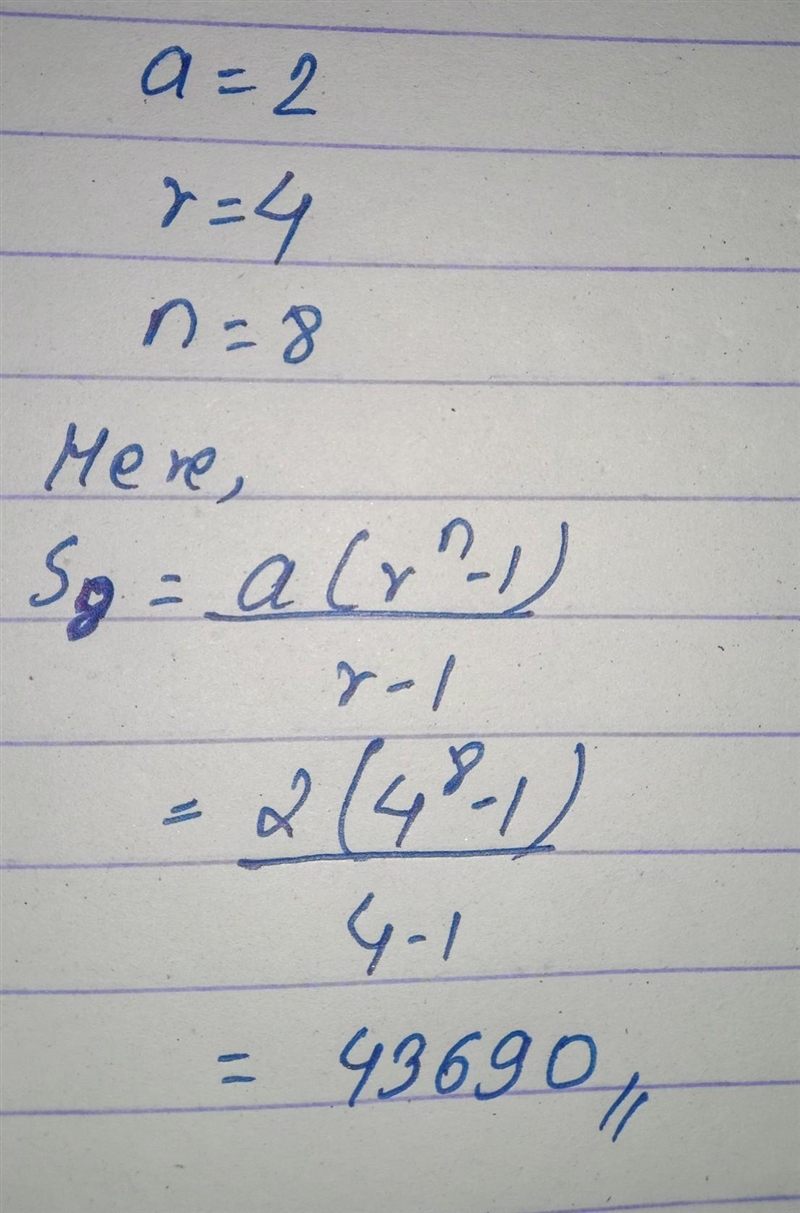 a = 2
r = 4
n = 8
Here,
S₈ = a(rⁿ-1)
r-1
= 2(4⁸-1)
4-1
= 43690,,